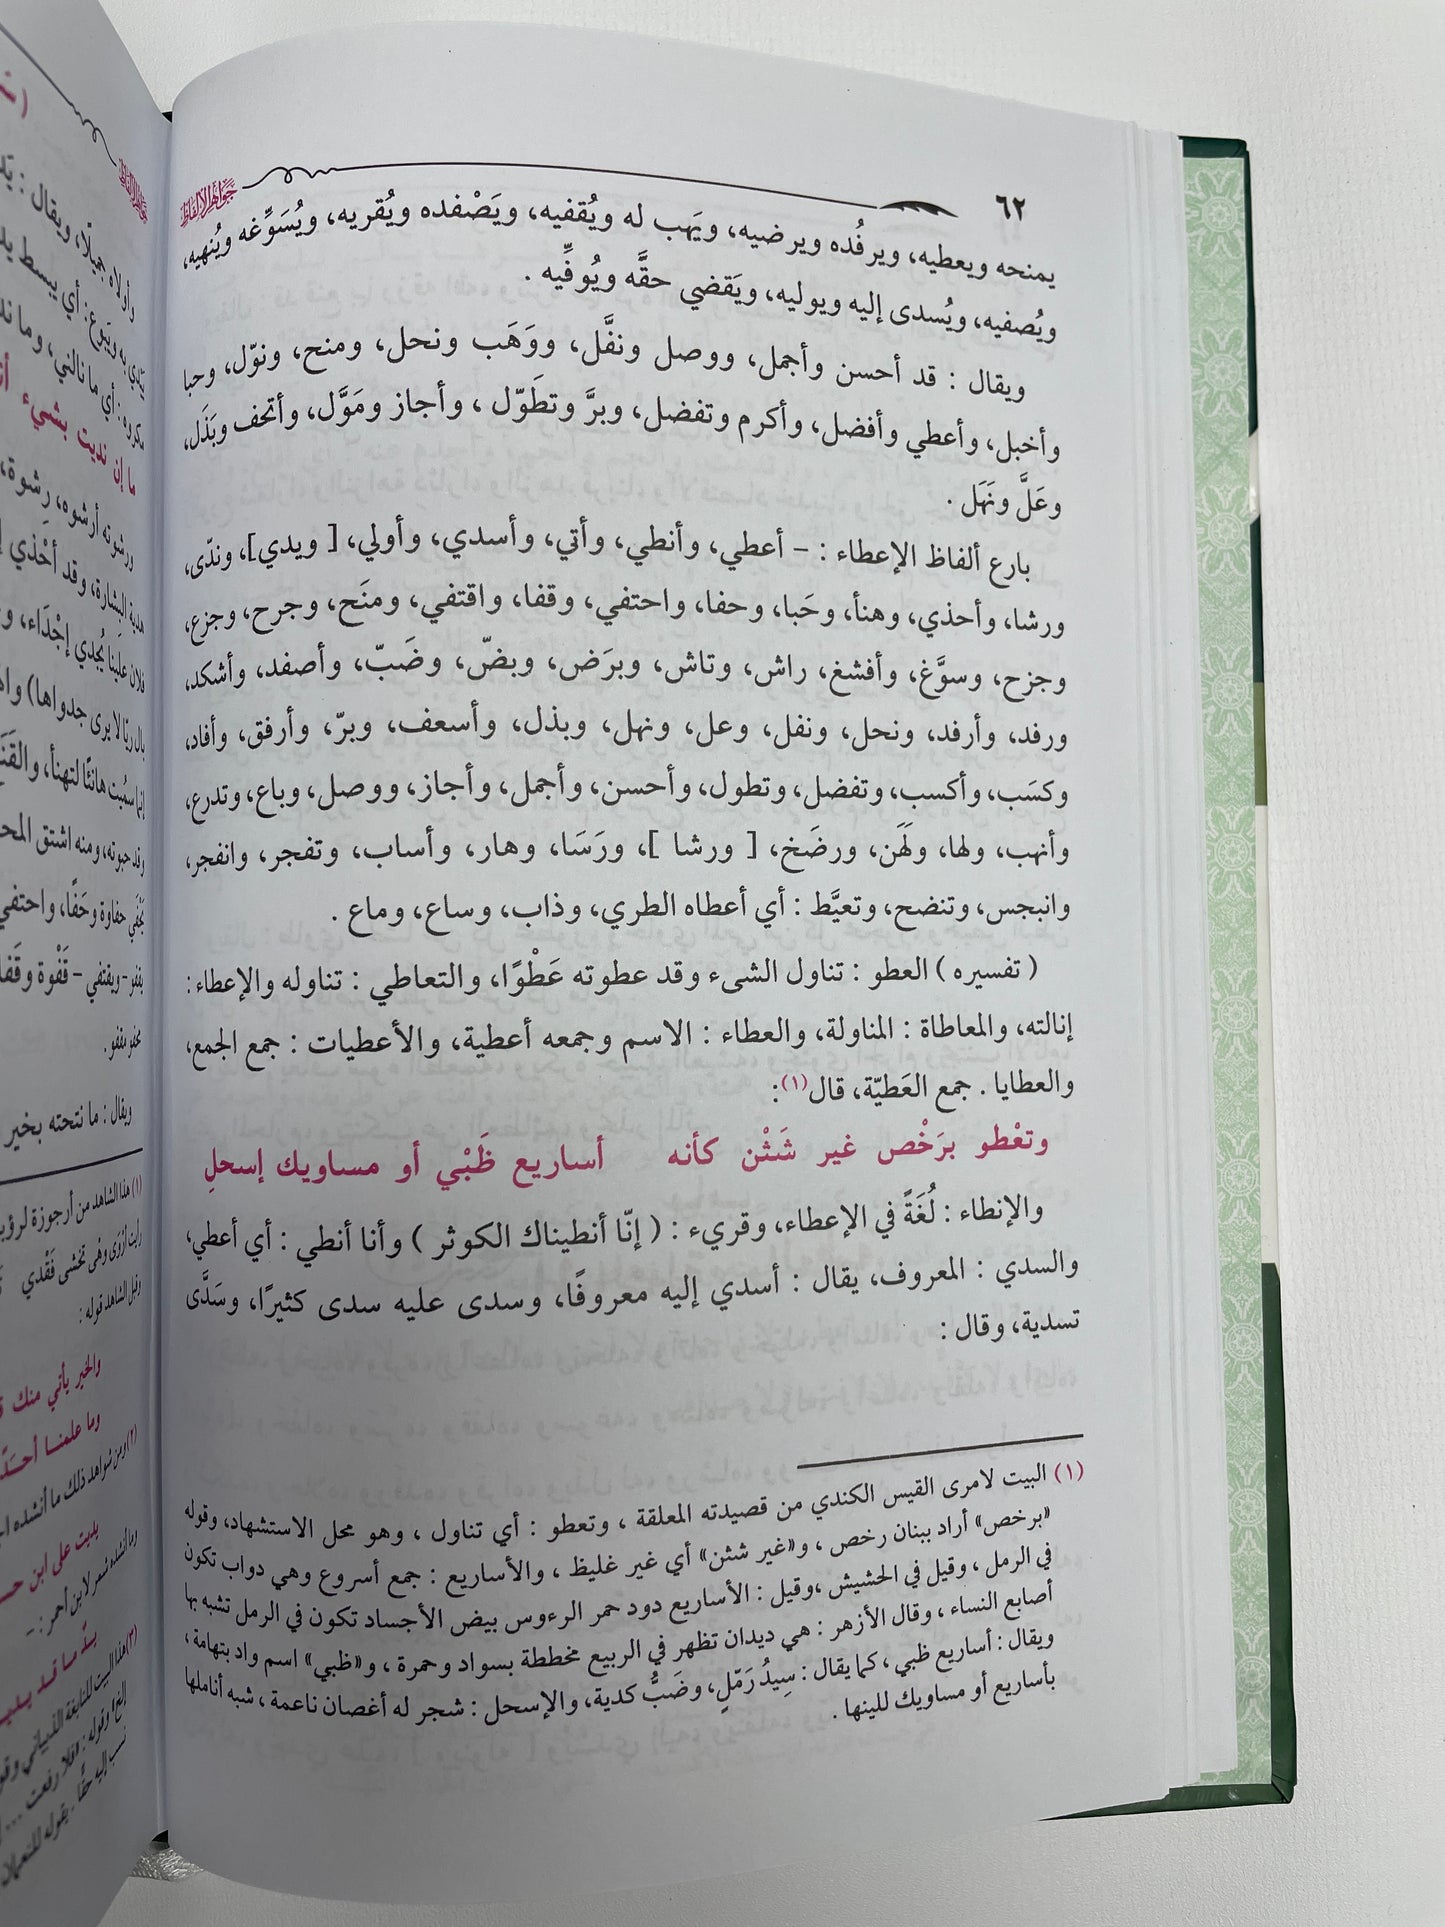 ٦٢
جواهر الألفاظ
يمنحه ويعطيه، ويرفُده ويرضيه، ويَهب له ويُقفيه، ويَصْفده ويُقريه، ويُسَوِّغه ويُنهيه،
ويُصفيه، ويُسدى إليه ويوليه، ويَقضي حقَّه ويُوفِّيه .
ويقال : قد أحسن وأجمل، ووصل ونفَّل، ووَهَب ونحل، ومنح، ونوّل، وحبا
وأخبل، وأعطي وأفضل، وأكرم وتفضل، وبرَّ وتطَوّل ، وأجاز ومَوَّل، وأتحف وبَذَل،
وعَلَّ ونَهَل .
بارع ألفاظ الإعطاء : – أعطي، وأنطي، وأتي، وأسدي، وأولي، [ ويدي]، وندّى،
ورشا، وأحذي، وهنأ، وحَبا، وحفا، واحتفي، وقفا، واقتفي، ومنَح، وجرح، وجزع،
وجزح، وسوَّغ، وأفشغ، راش، وتاش، وبرَض، وبضّ، وضَبّ، وأصفد، وأشكد،
ورفد، وأرفد، ونحل، ونفل، وعل، ونهل، وبذل، وأسعف، وبرّ، وأرفق، وأفاد،
وكسَب، وأكسب، وتفضل، وتطول، وأحسن، وأجمل، وأجاز، ووصل، وباع، وتدرع،
وأنهب، ولها، ولَهَن، ورضَخ، [ ورشا ]، ورَسَا، وهار، وأساب، وتفجر، وانفجر،
وانبجس، وتنضح، وتعيَّط : أي أعطاه الطري، وذاب، وساع، وماع .
( تفسيره ) العطو : تناول الشىء وقد عطوته عَطْوًا، والتعاطي : تناوله والإعطاء :
إنالته، والمعاطاة : المناولة، والعطاء : الاسم وجمعه أعطية، والأعطيات : جمع الجمع،
والعطايا . جمع العَطيّة، قال(١):
وتعْطو برَخْص غير شَثْن كأنه أساريع ظَبْي أو مساويك إسحلِ
والإنطاء : لُغَةً في الإعطاء، وقريء : ( إنّا أنطيناك الكوثر ) وأنا أنطي : أي أعطي،
والسدي : المعروف، يقال : أسدي إليه معروفًا، وسدى عليه سدى كثيرًا، وسَدَّى
تسدية، وقال :
(١) البيت لامرى القيس الكندي من قصيدته المعلقة ، وتعطو : أي تناول ، وهو محل الاستشهاد، وقوله
«برخص» أراد ببنان رخص ، و«غير شثن» أي غير غليظ ، والأساريع : جمع أسروع وهي دواب تكون
في الرمل ، وقيل في الحشيش ،وقيل : الأساريع دود حمر الرءوس بيض الأجساد تكون في الرمل تشبه بها
أصابع النساء ، وقال الأزهر : هي ديدان تظهر في الربيع مخططة بسواد وحمرة ، و«ظبي» اسم واد بتهامة ،
ويقال : أساريع ظبي ، كما يقال : سِيدُ رَمّلٍ، وضَبُّ كدية، والإسحل : شجر له أغصان ناعمة ، شبه أناملها
بأساريع أو مساويك للينها .
وأولاه جميلًا، ويقال :
ما إن نديت بشيء
ورشوته أرشوه، رِشوة،
هدية البشارة، وقد أحْذي
فلان علينا يُجدي إجْدَاء،
ويقال : ما نتحته بخير
(١) هذا الشاهد من أرجوزة
وقبل الشاهد قوله :
والخير يأتي منك
وما علمنا
(٢) ومن شواهد ذلك ما أنشده
بديت على ابن
(٣) هذا البيت للنابغة الذبياني